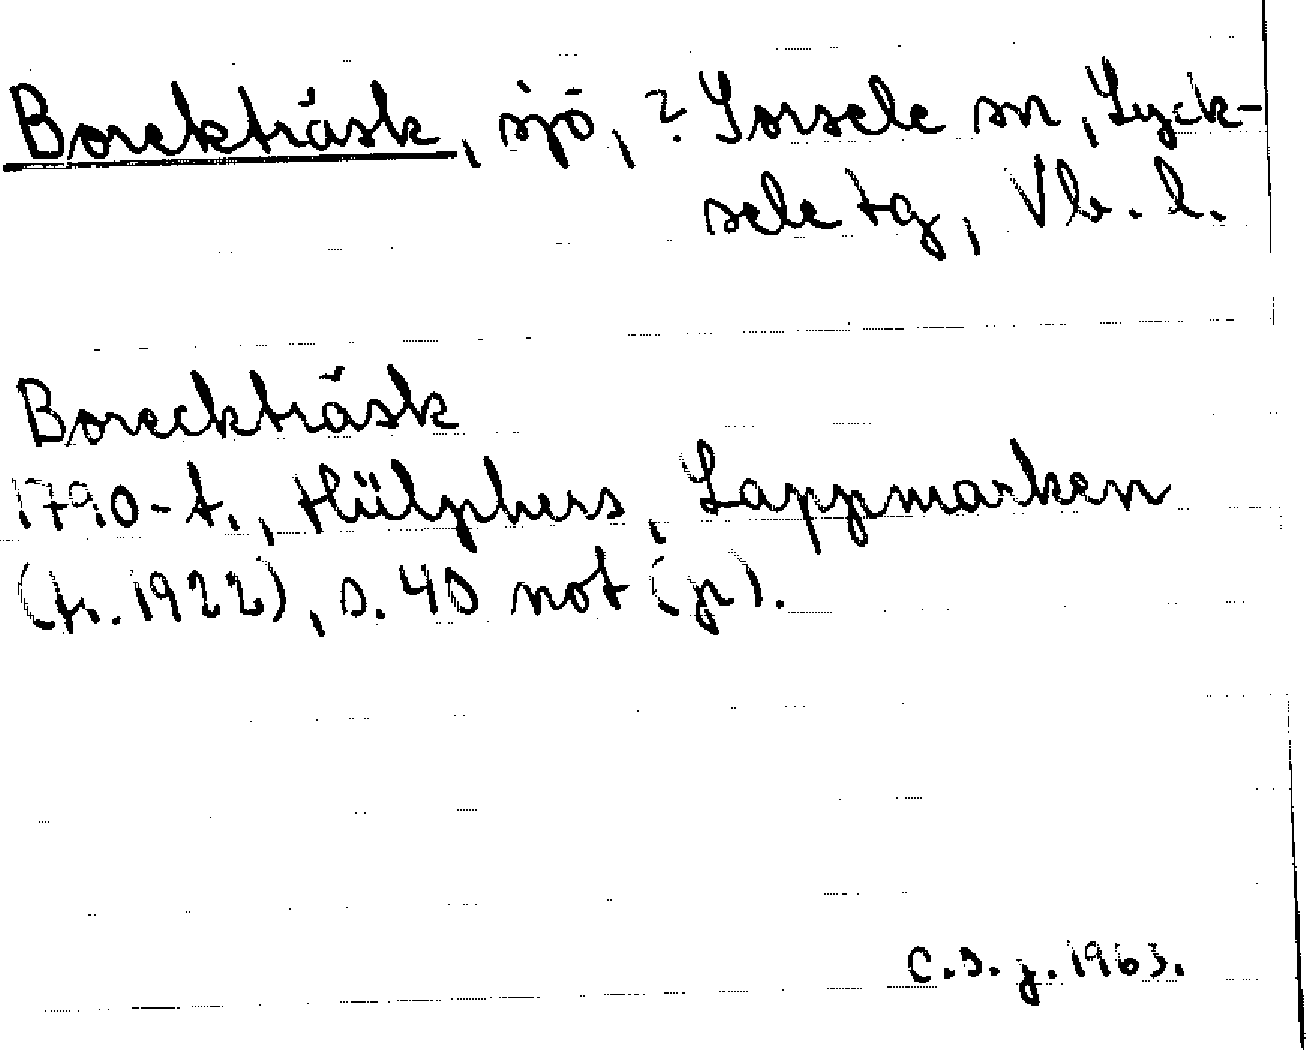 Boreckträsk, sjö, ? Sorsele sn, Lyck-
sele tg, Vb. l.
Boreckträsk
1790-t., Hülphers, Lappmarken
(tr. 1922), s. 40 not (p).
C.S. j. 1963.